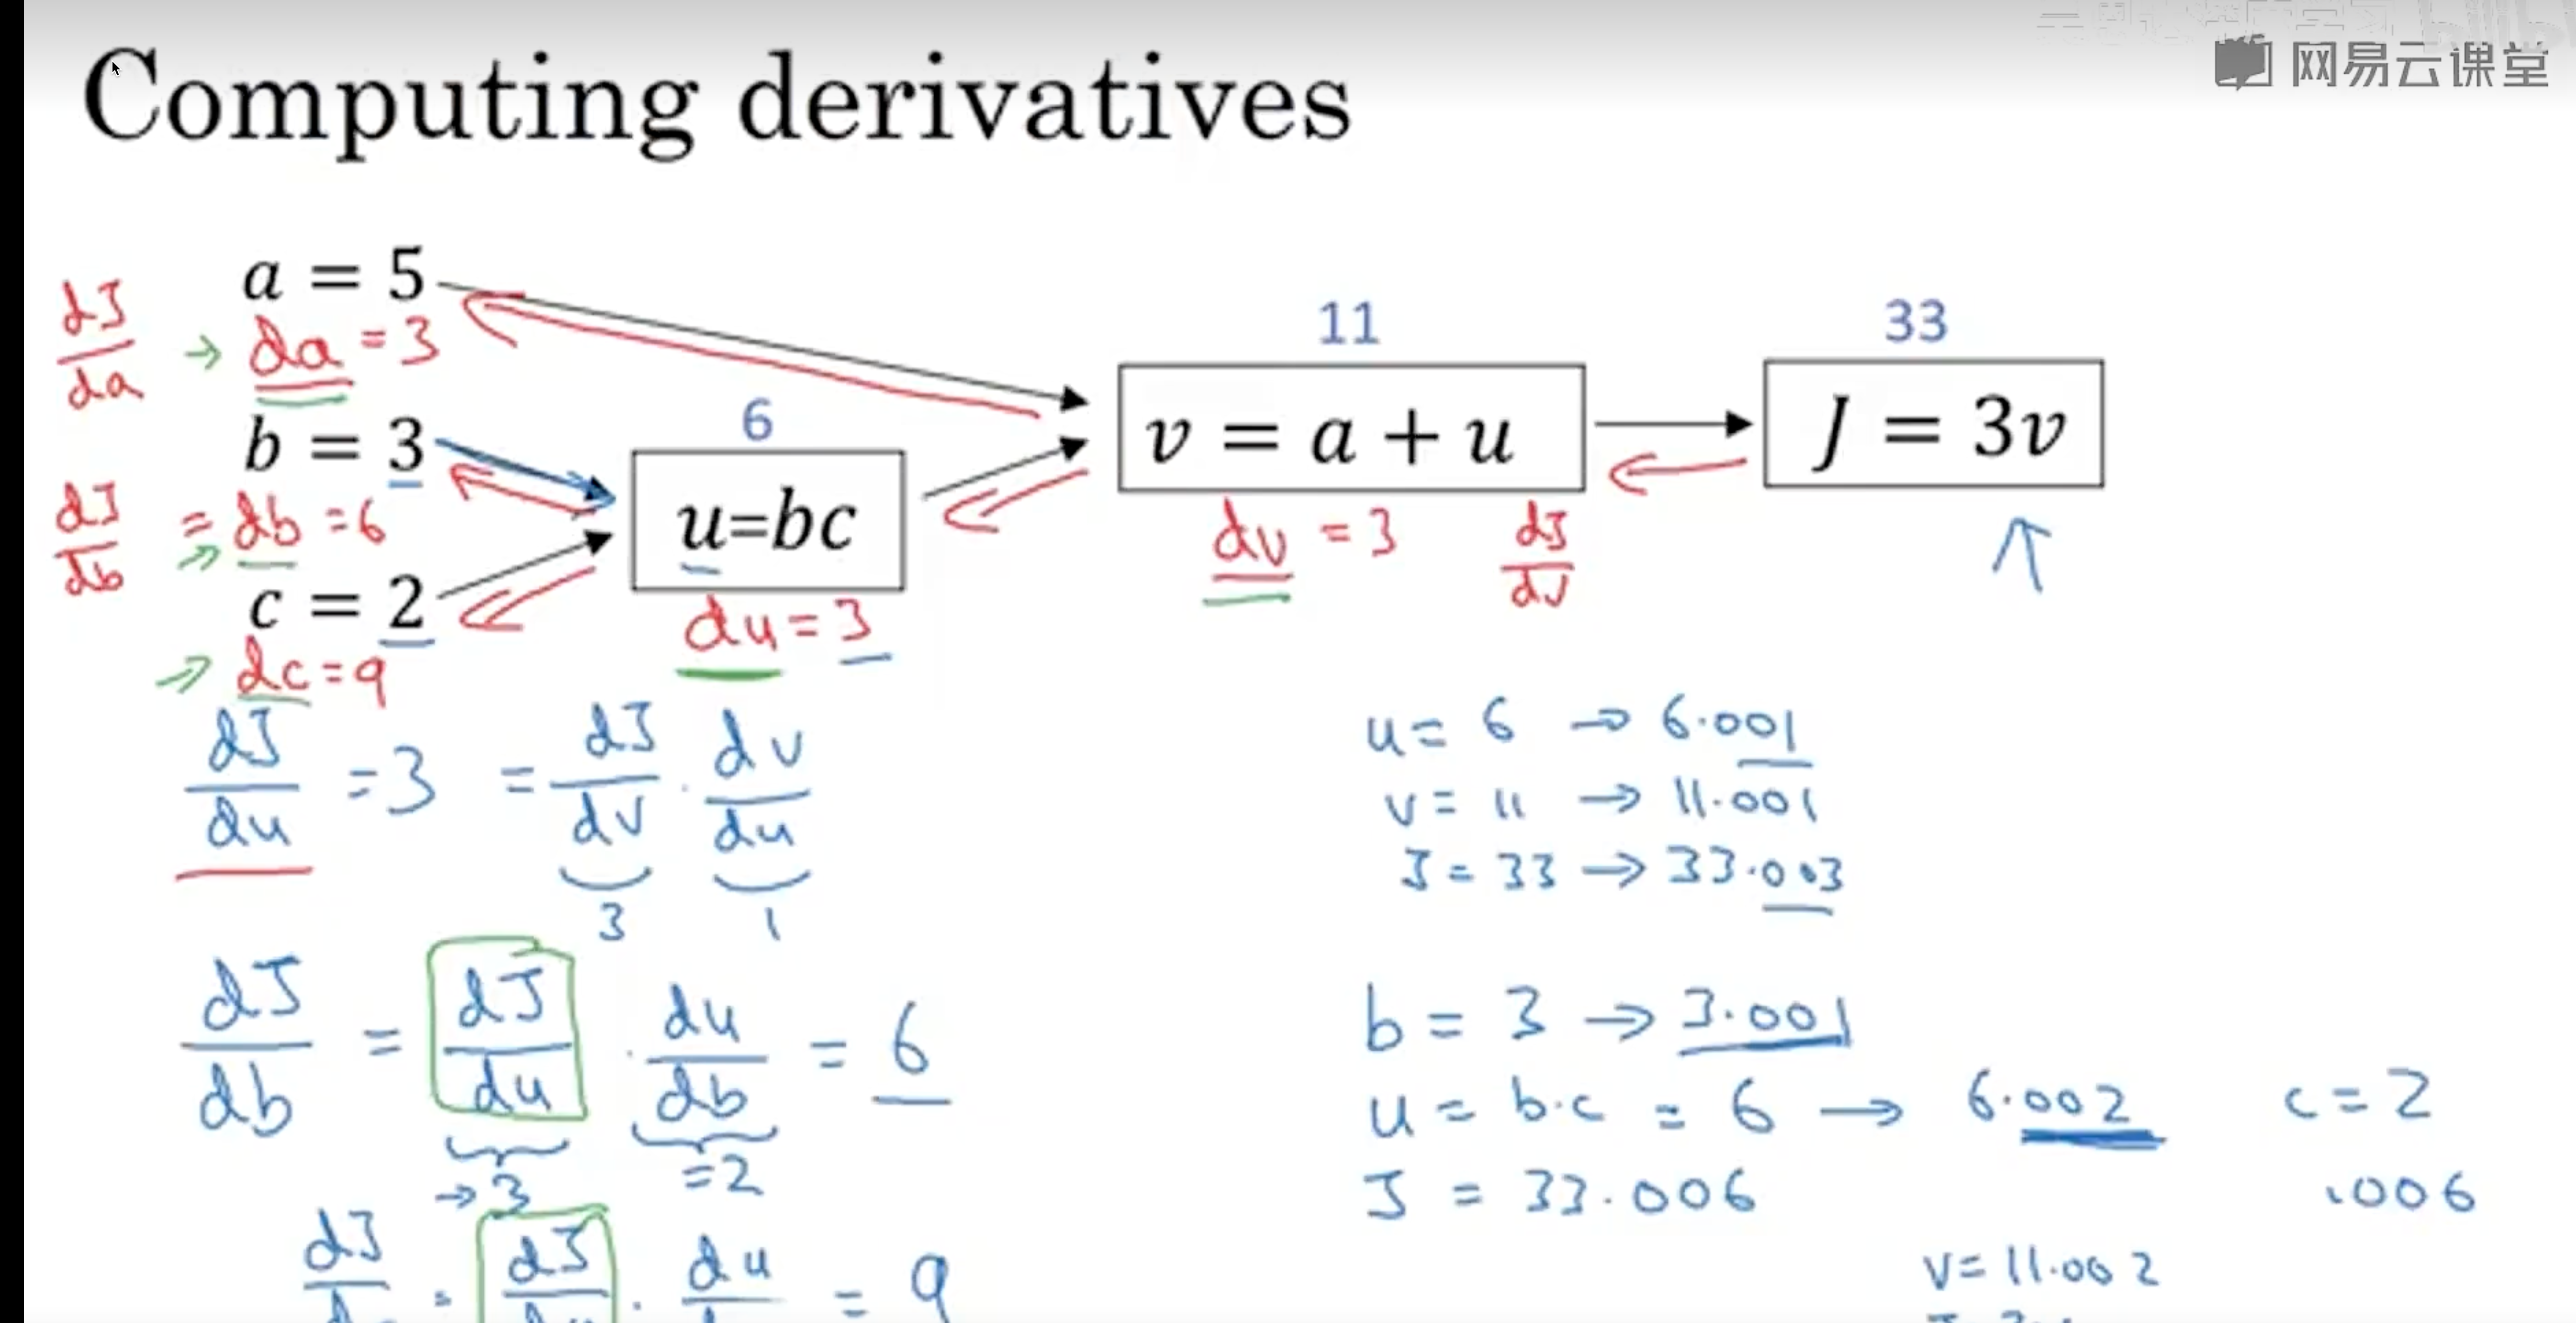 网易云课堂
Computing derivatives
a = 5
dJ/da → da = 3
b = 3
dJ/db = db = 6
c = 2
→ dc = 9
6
u=bc
du = 3
11
v = a + u
dv = 3 dJ/dv
33
J = 3v
dJ/du = 3 = dJ/dv · dv/du
3 1
dJ/db = dJ/du · du/db = 6
→ 3 = 2
dJ = dJ · du = 9
u = 6 → 6.001
v = 11 → 11.001
J = 33 → 33.003
b = 3 → 3.001
u = b·c = 6 → 6.002 c = 2
J = 33.006 .006
v = 11.002